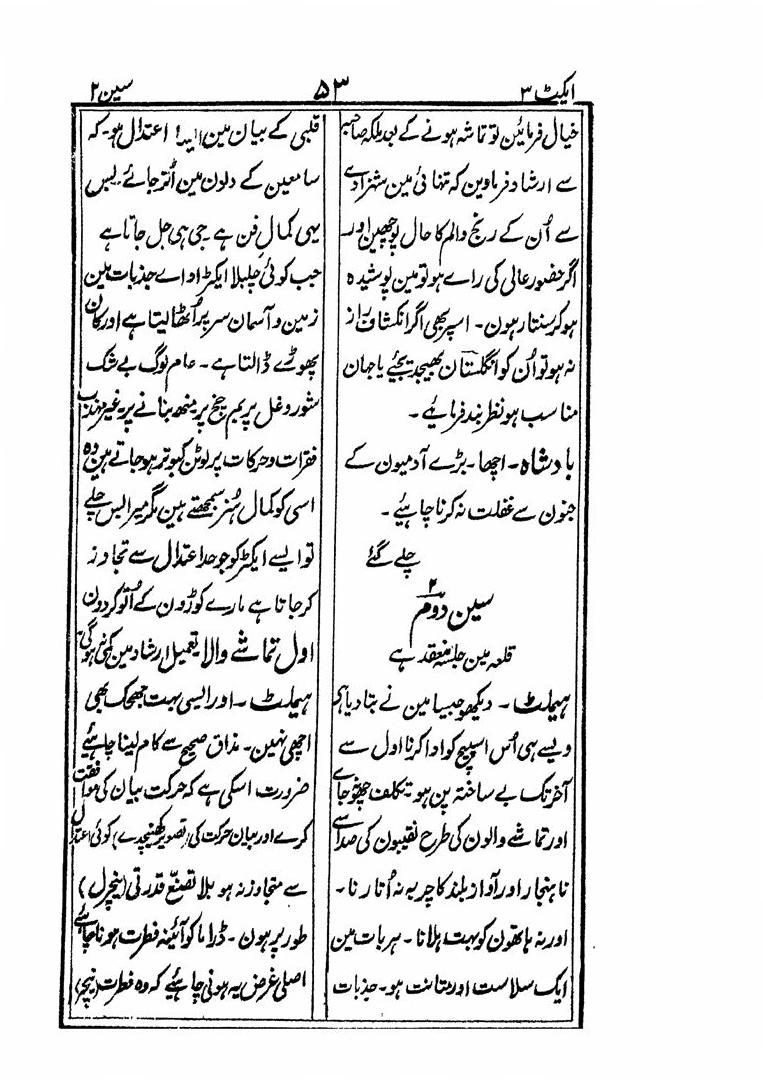 ایکٹ ۳
۵۳
سین ۲
خیال فرمائین تو تماشہ ہونے کے بعد ملکہ صاحبہ
سے ارشاد فرماوین کہ تنہائی مین شہزادے
سے اُن کے رنج والم کا حال پوچھین اور
اگر حضور عالی کی راے ہو تو مین پوشیدہ
ہو کر سنتا رہون۔ اسپر بھی اگر انکشاف راز
نہ ہو تو اُن کو انگلستان بھیجدیجئے یا جہان
مناسب ہو نظر بند فرمایئے۔
بادشاہ۔ اچھا۔ بڑے آدمیون کے
جنون سے غفلت نہ کرنا چاہیئے۔
چلے گئے
سین دوم ۲
قلعہ مین جلسہ منعقد ہے
ہیملٹ۔ دیکھو جیسا مین نے بتا دیا ہے
ویسے ہی اُس اسپیچ کو ادا کرنا اول سے
آخر تک بے ساختہ پن ہو تکلف چھو نجاے
اور تماشے والون کی طرح نقیبون کی صداے
ناہنجار اور آواز بلند کا چربہ نہ اُتارنا۔
اور نہ ہاتھون کو بہت ہلانا۔ ہر بات مین
ایک سلاست اور متانت ہو۔ جذبات
قلبی کے بیان مین ایسا اعتدال ہو۔ کہ
سامعین کے دلون مین اُتر جائے بس
یہی کمال فن ہے۔ جی ہی جل جاتا ہے
جب کوئی چلبلا ایکٹر اداے جذبات مین
زمین و آسمان سر پر اُٹھا لیتا ہے اور کان
پھوڑے ڈالتا ہے۔ عام لوگ بے شک
شور و غل پر چیخ پر منھ بنانے پر غیر مہذب
فقرات و حرکات پر لوٹن کبوتر ہو جاتے ہین وہ
اسی کو کمال ہُنر سمجھتے ہین مگر میرا بس چلے
تو ایسے ایکٹر کو جو حد اعتدال سے تجاوز
کر جاتا ہے مارے کوڑون کے اُتو کر دون
اول تماشے والا۔ تعمیل ارشاد مین کمی نہ ہوگی
ہیملٹ۔ اور ایسی بہت جھجک بھی
اچھی نہین۔ مذاق صحیح سے کام لینا چاہیئے
ضرورت اسکی ہے کہ حرکت بیان کی موافقت
کرے اور بیان حرکت کی (تصویر کھینچدے) کوئی اعتدال
سے متجاوز نہ ہو بلا تصنّع قدرتی (نیچرل)
طور پر ہون۔ ڈراما کو آئینہ فطرت ہونا چاہئے
اصلی غرض یہ ہونی چاہیئے کہ وہ فطرت (نیچر)